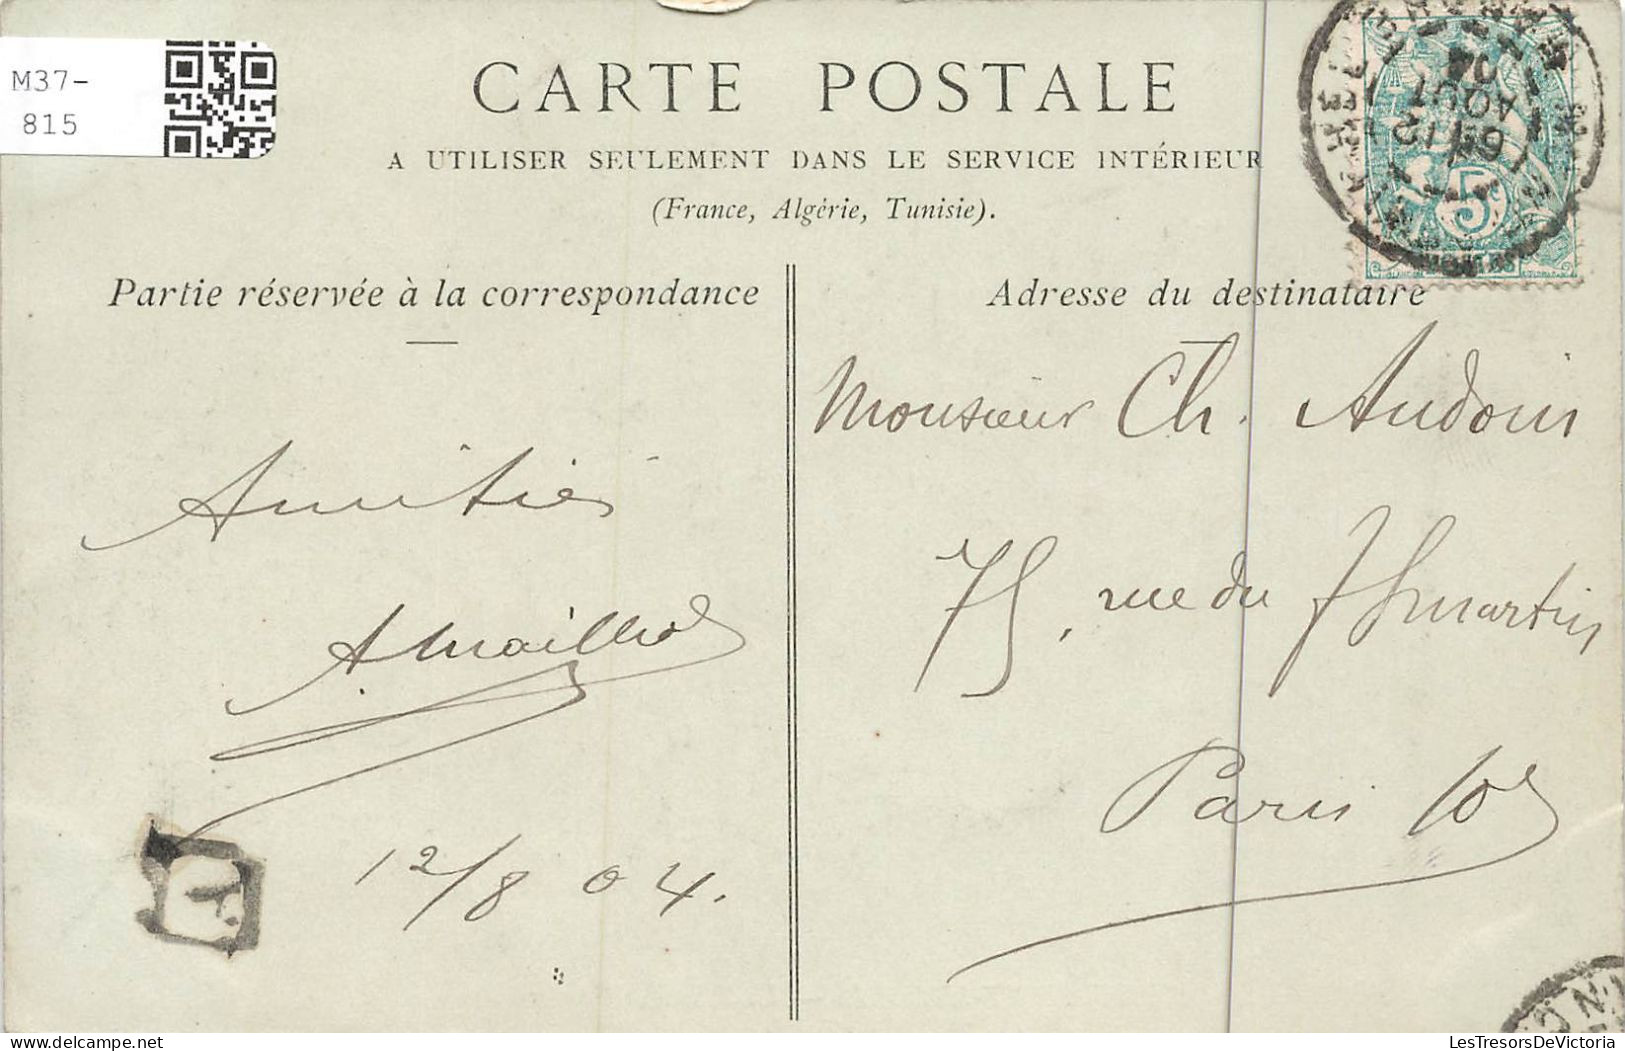 M37-
815
CARTE POSTALE
A UTILISER SEULEMENT DANS LE SERVICE INTÉRIEUR
(France, Algérie, Tunisie).
Partie réservée à la correspondance
Amitiés
12/8 04.
Adresse du destinataire
Monsieur Ch. Audoin
75, rue du F g S t martin
Paris 10e
AOUT
04
5
LesTresorsDeVictoria.com